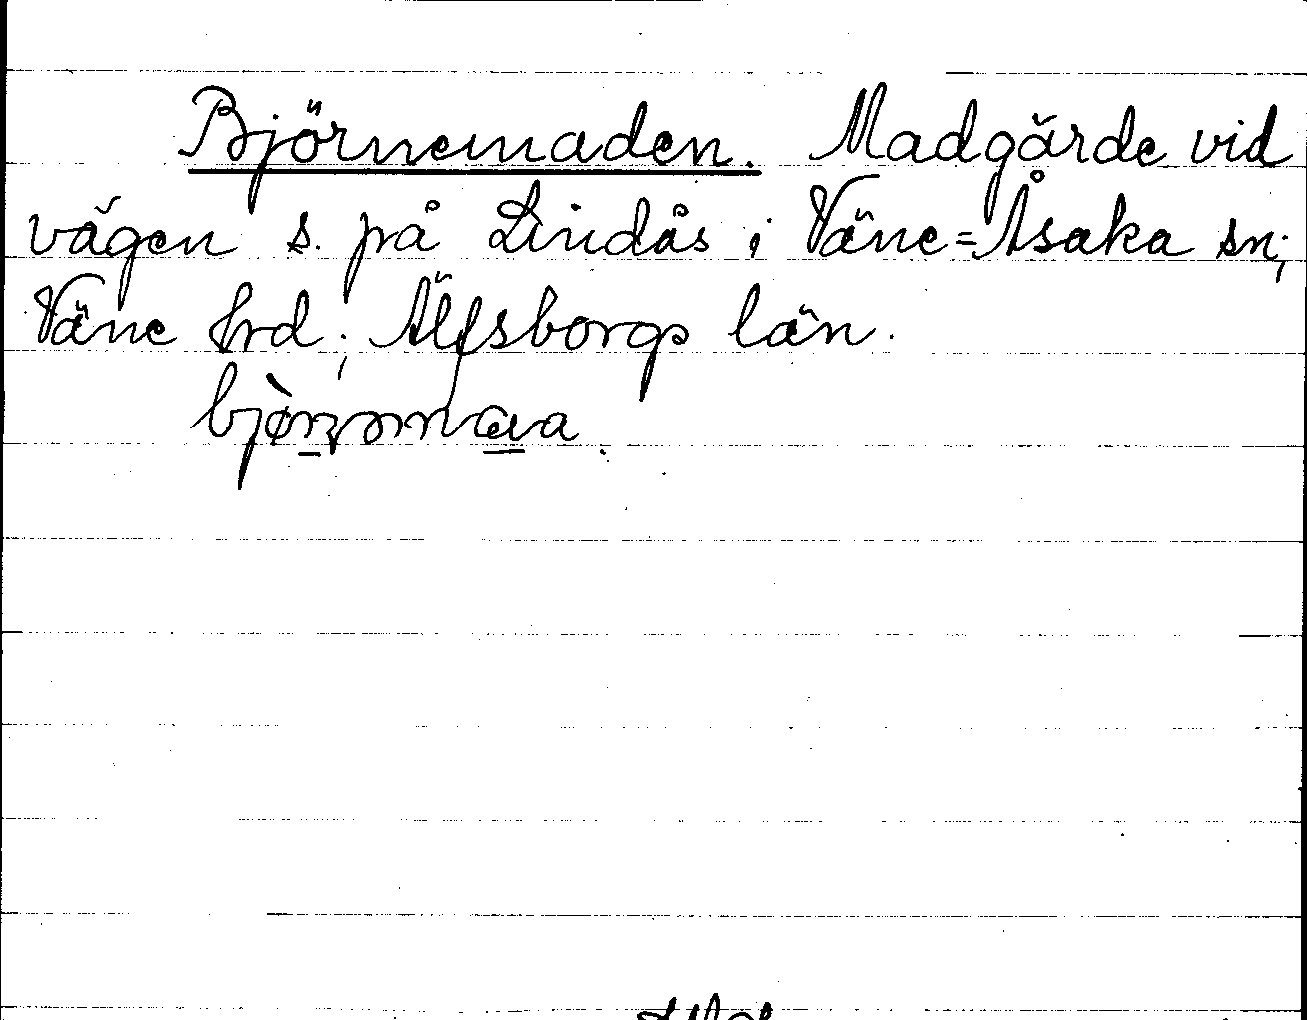 Björnemaden. Madgärde vid
vägen s. på Lindås i Väne=Åsaka sn;
Väne hrd; Älfsborgs län.